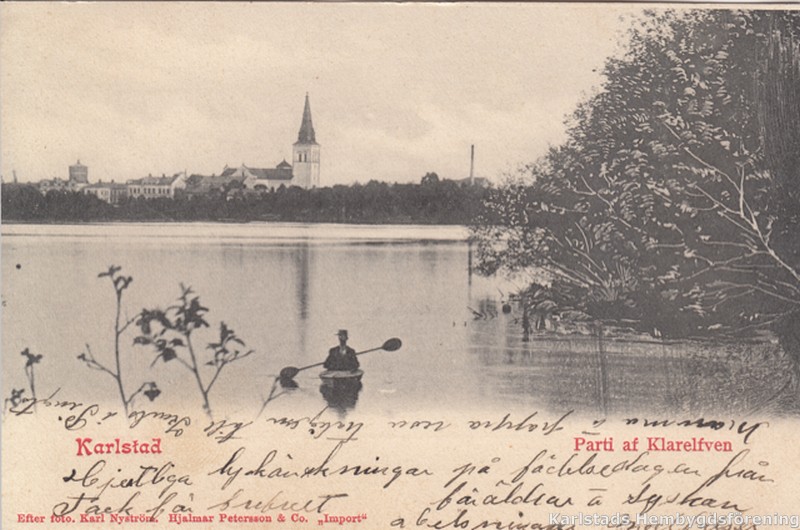 Karlstad
Parti af Klarelfven
Hjertliga lyckönskningar på födelsedagen från
Tack för brefvet
föräldrar å syskon
Efter foto. Karl Nyström. Hjalmar Petersson & Co. „Import“
Karlstads Hembygdsförening
mamma å pappa